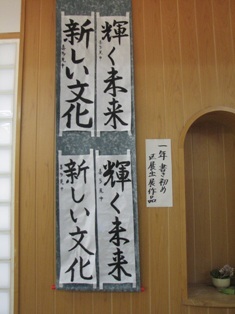 輝く未来
新しい文化
輝く未来
新しい文化
一年書き初め
展出展作品